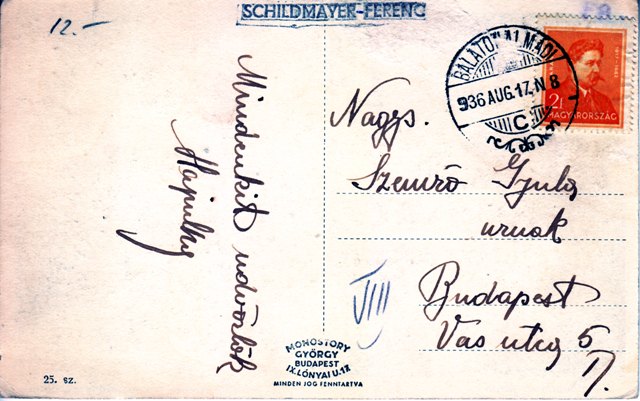 12.-
SCHILDMAYER-FERENC
BALATONALMÁDI
936 AUG.17.N 8
C
2f
MAGYARORSZÁG
Mindenkit üdvözlök
Nagys.
Gyula
urnak
Budapest
Vas utca 5
VIII
MONOSTORY
GYÖRGY
BUDAPEST
IX.LÓNYAI U.17
MINDEN JOG FENNTARTVA
25. sz.